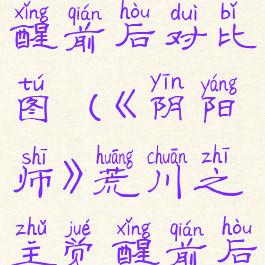 xǐng qián hòu duì bǐ
醒前后对比
tú yīn yáng
图(《阴阳
shī huāng chuān zhī
师》荒川之
zhǔ jué xǐng qián hòu
主觉醒前后